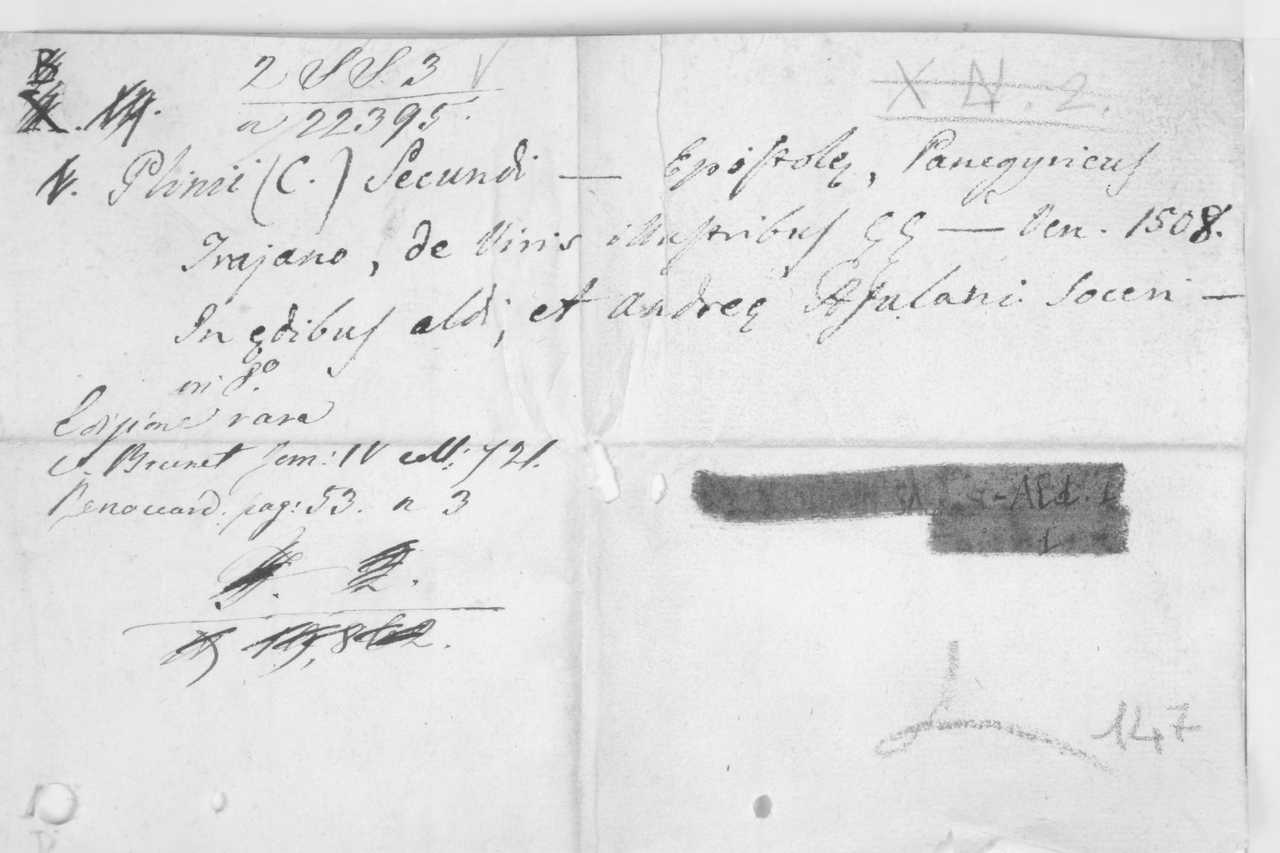 2 S S. 3 V
a 22395.
X N. 2.
V. Plinii (C.) Secundi — Epistolę, Panegyricus
Trajano, de Viris illustribus &c — Ven. 1508.
In ędibus aldi, et andreę Asulani Soceri —
in 8º
Edizione rara
v. Brunet Tom: IV coll: 721.
Renouard. pag: 53. n 3
L
147